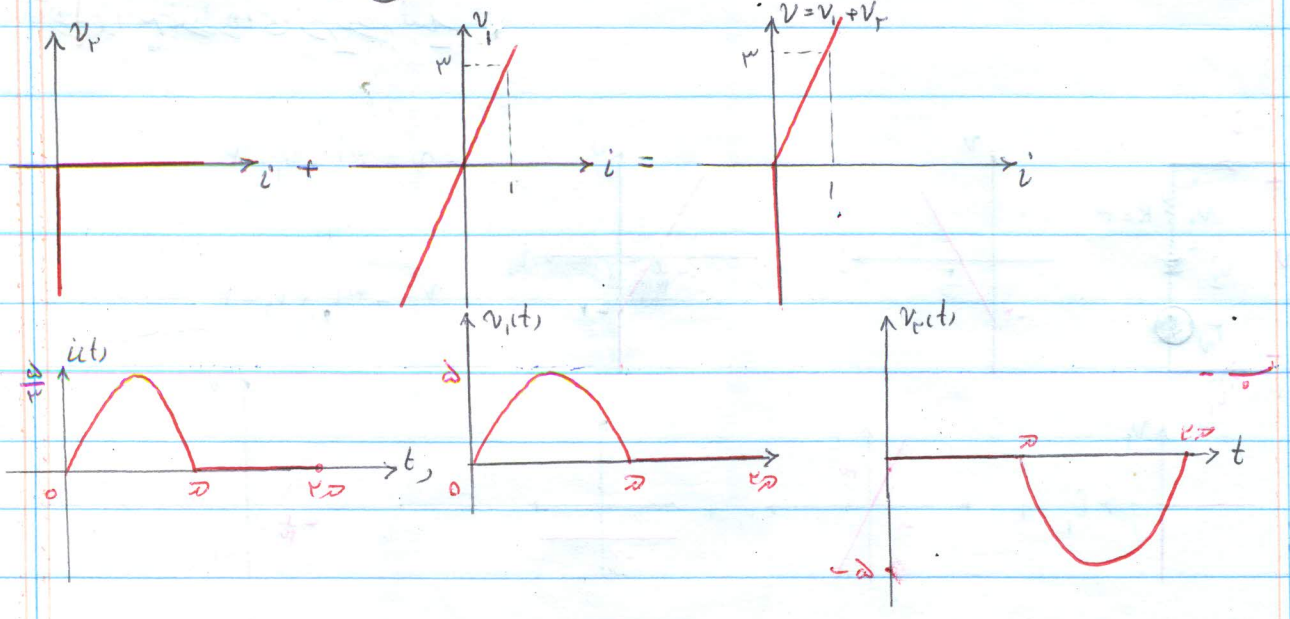 v۲
i
+
v۱
۳
۱
i
=
v = v۱ + v۲
۳
۱
i
i(t)
۵/۳
۰
π
۲π
t,
v۱(t)
۵
۰
π
۲π
v۲(t)
π
۲π
t
-۵